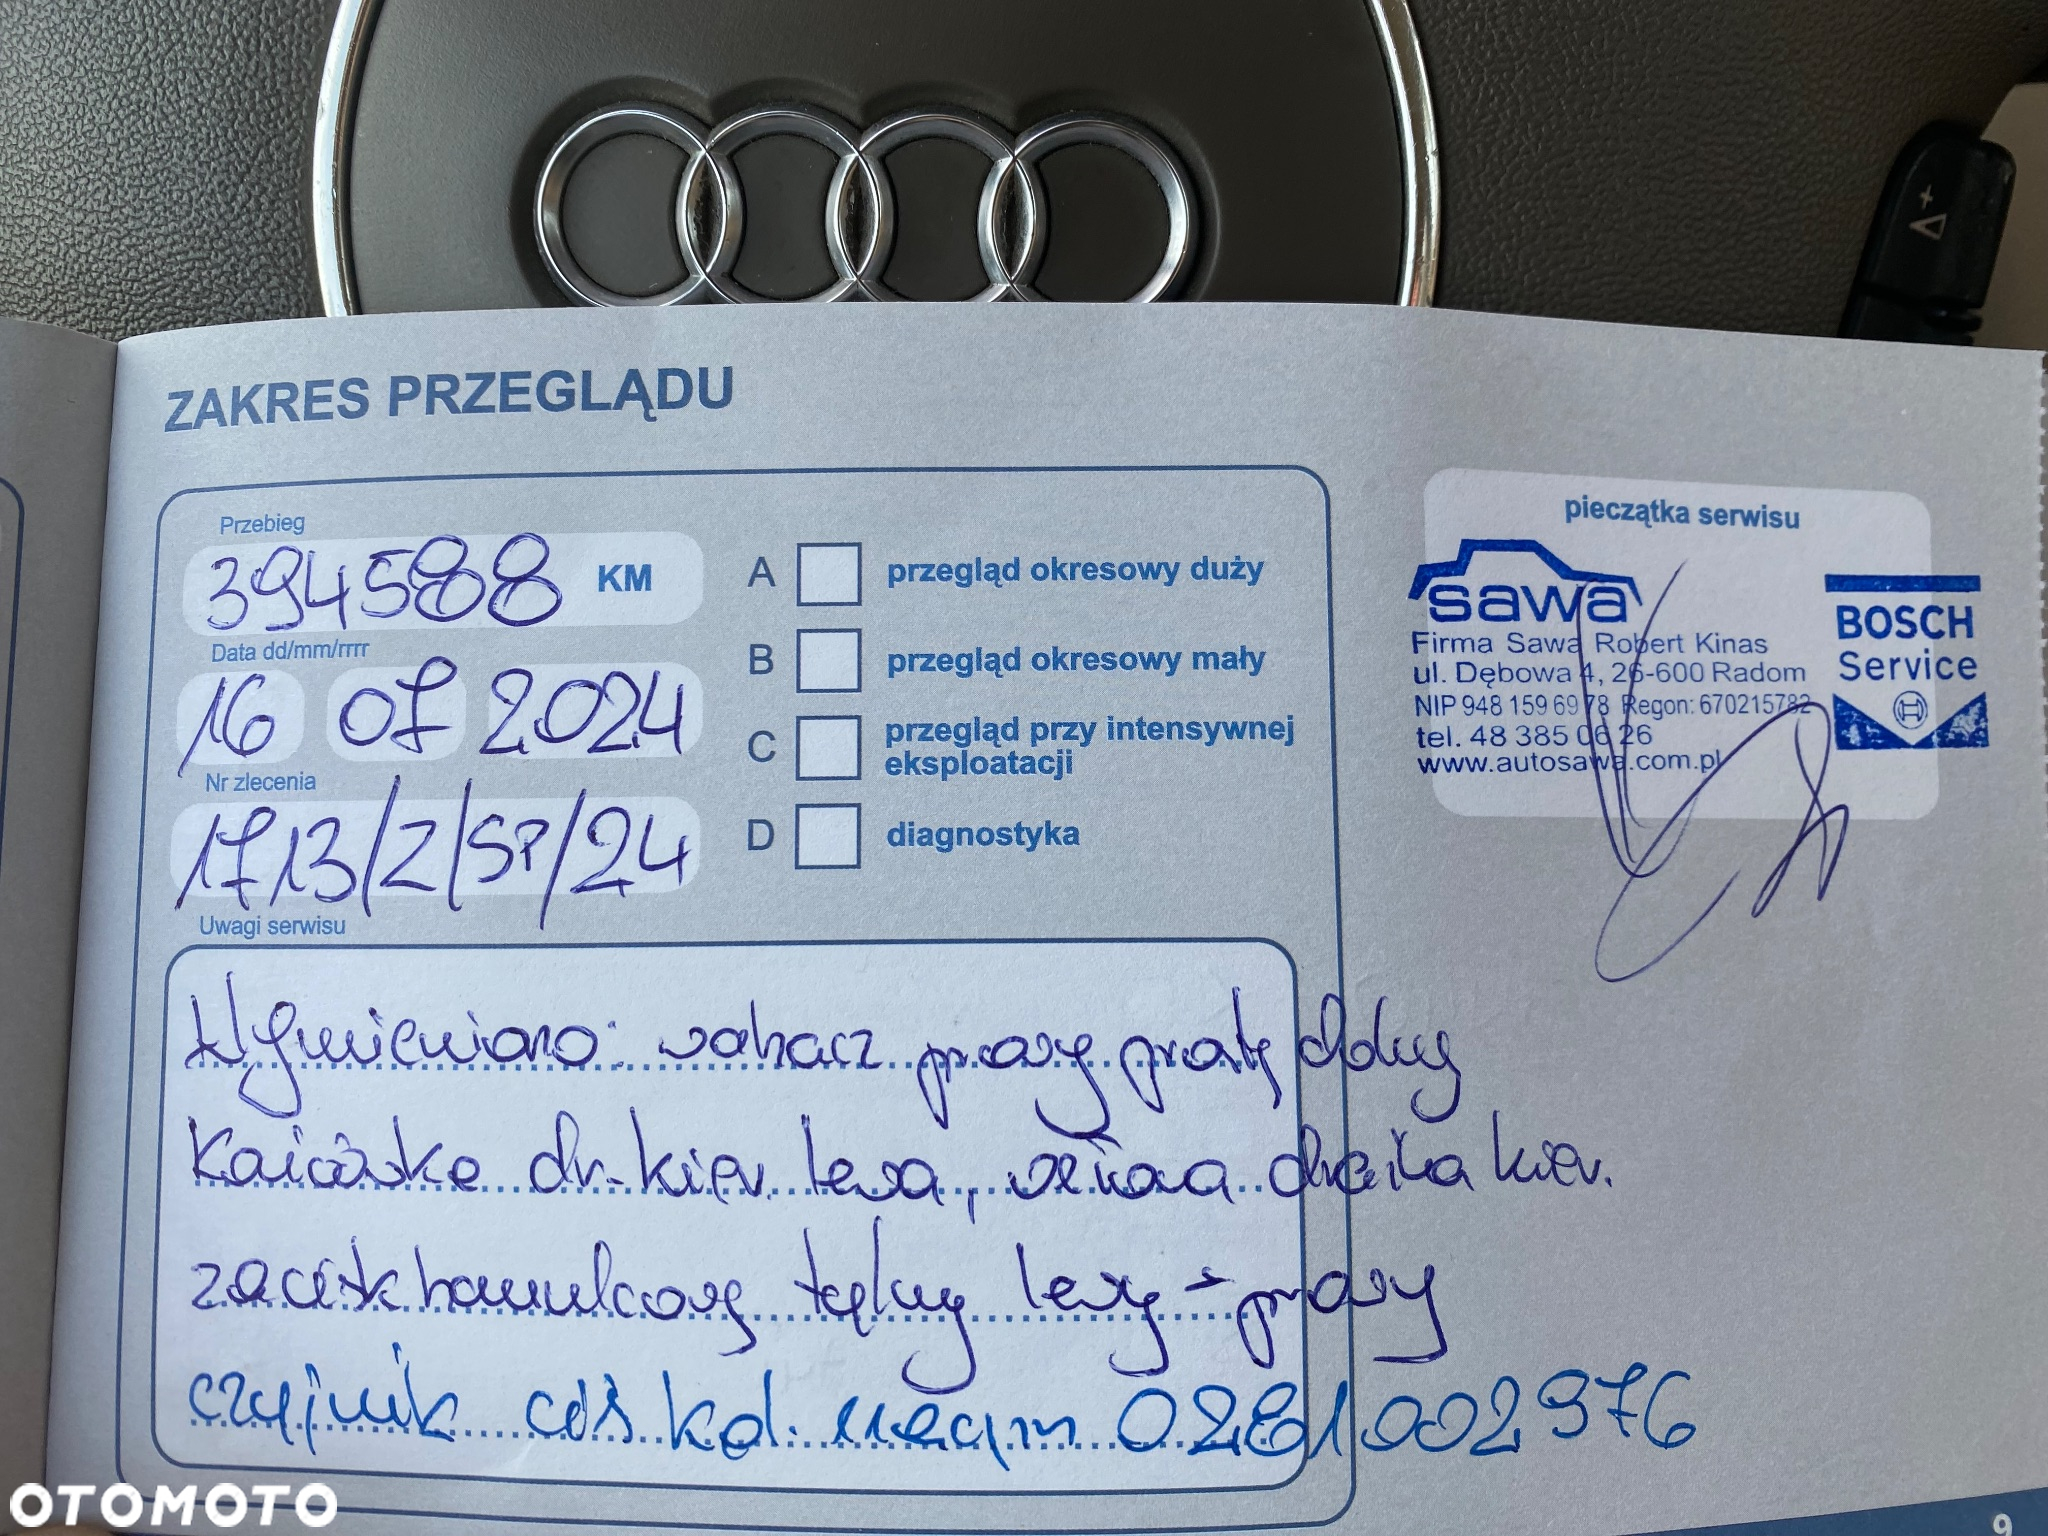 ZAKRES PRZEGLĄDU
Przebieg
394588 KM
Data dd/mm/rrrr
16 07 2024
Nr zlecenia
1713/Z/SP/24
A przegląd okresowy duży
B przegląd okresowy mały
C przegląd przy intensywnej
eksploatacji
D diagnostyka
pieczątka serwisu
sawa
Firma Sawa Robert Kinas
ul. Dębowa 4, 26-600 Radom
NIP 948 159 69 78 Regon: 670215782
tel. 48 385 06 26
www.autosawa.com.pl
BOSCH
Service
Uwagi serwisu
Wymieniono: wahacz prawy prosty dolny
Końcówkę dr. kier. lewa, osłona drążka kier.
zacisk hamulcowy tylny lewy + prawy
czujnik ciś kol. 0281002976
OTOMOTO
9